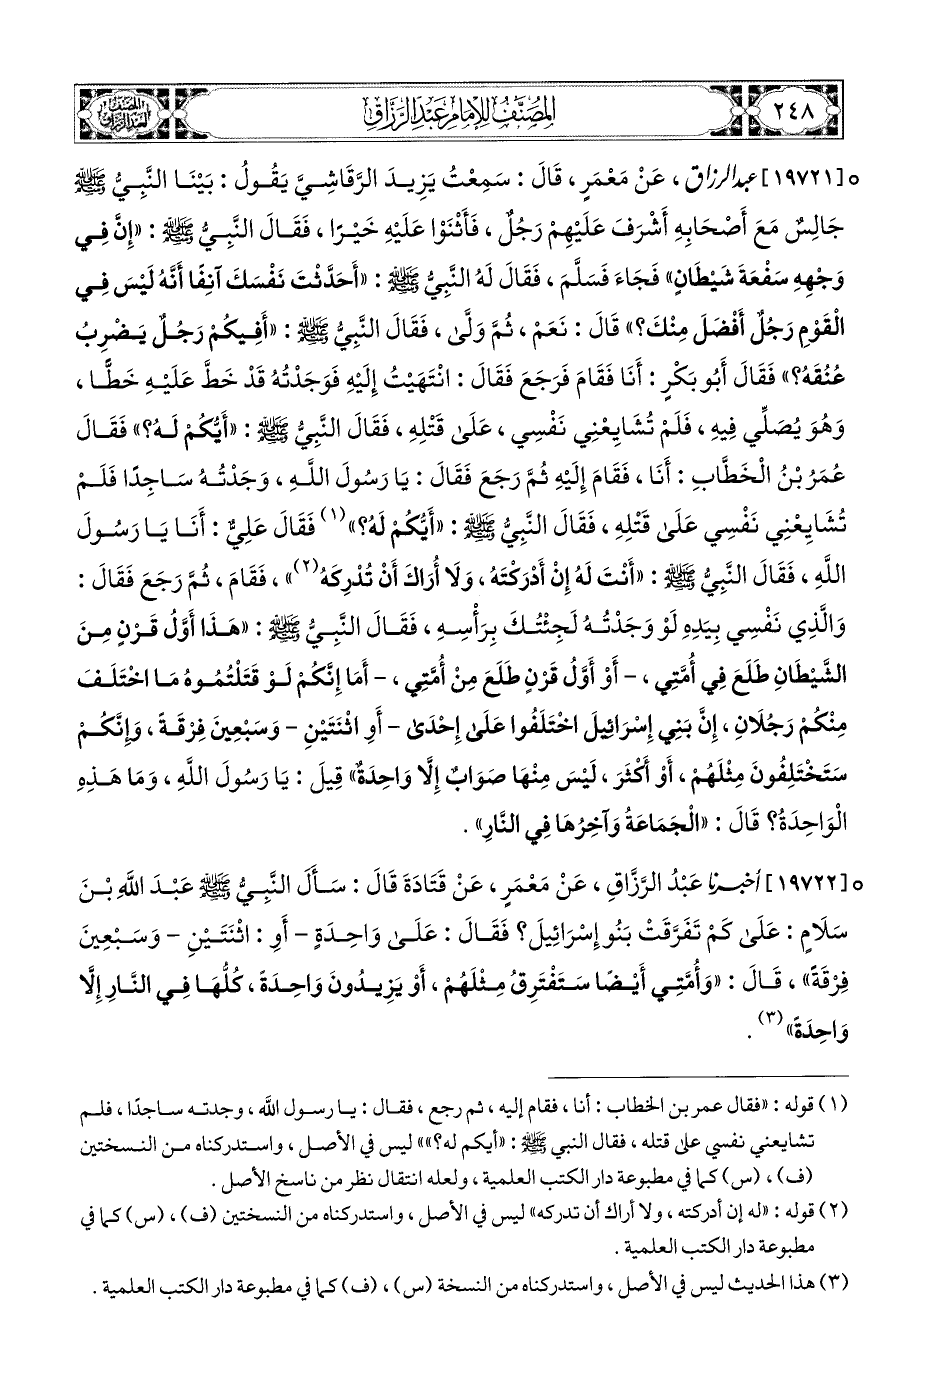 ٢٤٨
المصنف للإمام عبد الرزاق
المصنف
لعبد الرزاق
٥ [١٩٧٢١] عبد الرزاق، عَنْ مَعْمَرٍ، قَالَ: سَمِعْتُ يَزِيدَ الرَّقَاشِيَّ يَقُولُ: بَيْنَا النَّبِيُّ ﷺ
جَالِسٌ مَعَ أَصْحَابِهِ أَشْرَفَ عَلَيْهِمْ رَجُلٌ، فَأَثْنَوْا عَلَيْهِ خَيْرًا، فَقَالَ النَّبِيُّ ﷺ: «إِنَّ فِي
وَجْهِهِ سَفْعَةَ شَيْطَانٍ» فَجَاءَ فَسَلَّمَ، فَقَالَ لَهُ النَّبِيُّ ﷺ: «أَحَدَّثْتَ نَفْسَكَ آنِفًا أَنَّهُ لَيْسَ فِي
الْقَوْمِ رَجُلٌ أَفْضَلَ مِنْكَ؟» قَالَ: نَعَمْ، ثُمَّ وَلَّى، فَقَالَ النَّبِيُّ ﷺ: «أَفِيكُمْ رَجُلٌ يَضْرِبُ
عُنُقَهُ؟» فَقَالَ أَبُو بَكْرٍ: أَنَا فَقَامَ فَرَجَعَ فَقَالَ: انْتَهَيْتُ إِلَيْهِ فَوَجَدْتُهُ قَدْ خَطَّ عَلَيْهِ خَطًّا،
وَهُوَ يُصَلِّي فِيهِ، فَلَمْ تُشَايِعْنِي نَفْسِي، عَلَى قَتْلِهِ، فَقَالَ النَّبِيُّ ﷺ: «أَيُّكُمْ لَهُ؟» فَقَالَ
عُمَرُ بْنُ الْخَطَّابِ: أَنَا، فَقَامَ إِلَيْهِ ثُمَّ رَجَعَ فَقَالَ: يَا رَسُولَ اللَّهِ، وَجَدْتُهُ سَاجِدًا فَلَمْ
تُشَايِعْنِي نَفْسِي عَلَى قَتْلِهِ، فَقَالَ النَّبِيُّ ﷺ: «أَيُّكُمْ لَهُ؟»(١) فَقَالَ عَلِيٌّ: أَنَا يَا رَسُولَ
اللَّهِ، فَقَالَ النَّبِيُّ ﷺ: «أَنْتَ لَهُ إِنْ أَدْرَكْتَهُ، وَلَا أُرَاكَ أَنْ تُدْرِكَهُ(٢)»، فَقَامَ، ثُمَّ رَجَعَ فَقَالَ:
وَالَّذِي نَفْسِي بِيَدِهِ لَوْ وَجَدْتُهُ لَجِئْتُكَ بِرَأْسِهِ، فَقَالَ النَّبِيُّ ﷺ: «هَذَا أَوَّلُ قَرْنٍ مِنَ
الشَّيْطَانِ طَلَعَ فِي أُمَّتِي، - أَوْ أَوَّلُ قَرْنٍ طَلَعَ مِنْ أُمَّتِي، - أَمَا إِنَّكُمْ لَوْ قَتَلْتُمُوهُ مَا اخْتَلَفَ
مِنْكُمْ رَجُلَانِ، إِنَّ بَنِي إِسْرَائِيلَ اخْتَلَفُوا عَلَى إِحْدَى - أَوِ اثْنَتَيْنِ - وَسَبْعِينَ فِرْقَةً، وَإِنَّكُمْ
سَتَخْتَلِفُونَ مِثْلَهُمْ، أَوْ أَكْثَرَ، لَيْسَ مِنْهَا صَوَابٌ إِلَّا وَاحِدَةٌ» قِيلَ: يَا رَسُولَ اللَّهِ، وَمَا هَذِهِ
الْوَاحِدَةُ؟ قَالَ: «الْجَمَاعَةُ وَآخِرُهَا فِي النَّارِ».
٥ [١٩٧٢٢] أخبرنا عَبْدُ الرَّزَّاقِ، عَنْ مَعْمَرٍ، عَنْ قَتَادَةَ قَالَ: سَأَلَ النَّبِيُّ ﷺ عَبْدَ اللَّهِ بْنَ
سَلَامٍ: عَلَى كَمْ تَفَرَّقَتْ بَنُو إِسْرَائِيلَ؟ فَقَالَ: عَلَى وَاحِدَةٍ - أَوِ: اثْنَتَيْنِ - وَسَبْعِينَ
فِرْقَةً»، قَالَ: «وَأُمَّتِي أَيْضًا سَتَفْتَرِقُ مِثْلَهُمْ، أَوْ يَزِيدُونَ وَاحِدَةً، كُلُّهَا فِي النَّارِ إِلَّا
وَاحِدَةً»(٣).
(١) قوله: «فقال عمر بن الخطاب: أنا، فقام إليه، ثم رجع، فقال: يا رسول الله، وجدته ساجدًا، فلم
تشايعني نفسي على قتله، فقال النبي ﷺ: «أيكم له؟»» ليس في الأصل، واستدركناه من النسختين
(ف)، (س) كما في مطبوعة دار الكتب العلمية، ولعله انتقال نظر من ناسخ الأصل.
(٢) قوله: «له إن أدركته، ولا أراك أن تدركه» ليس في الأصل، واستدركناه من النسختين (ف)، (س) كما في
مطبوعة دار الكتب العلمية.
(٣) هذا الحديث ليس في الأصل، واستدركناه من النسخة (س)، (ف) كما في مطبوعة دار الكتب العلمية.